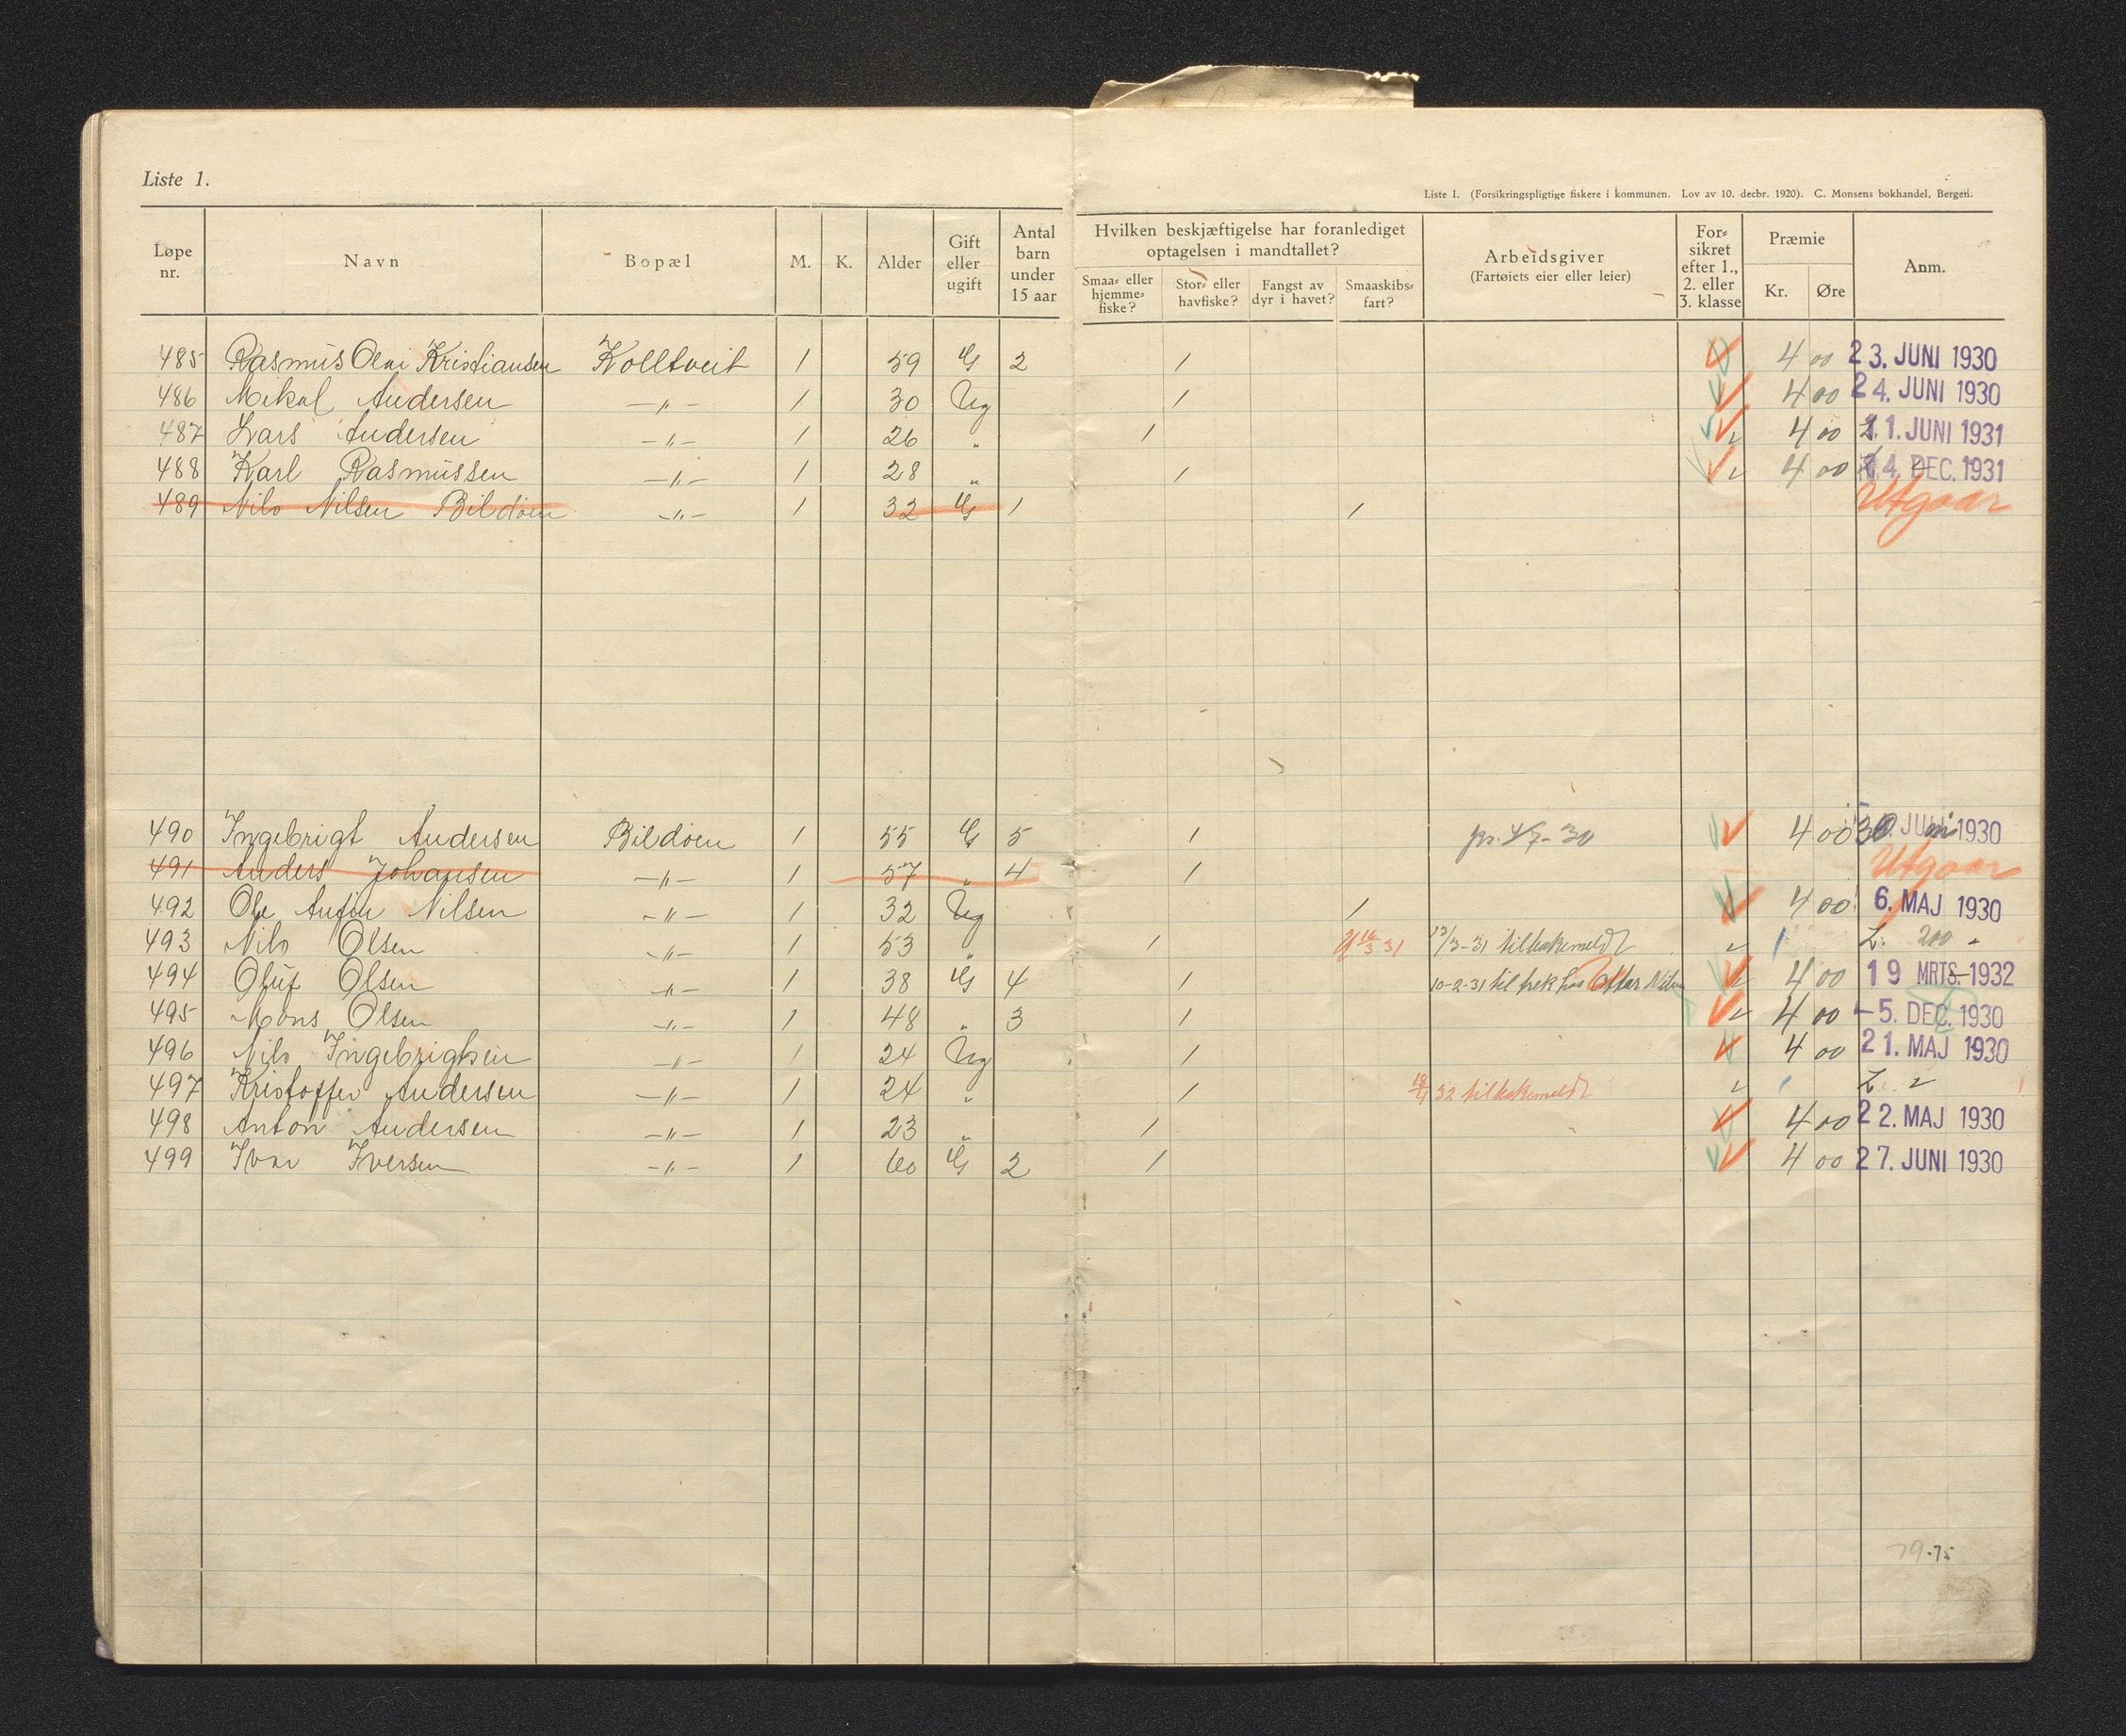 Liste 1.
Liste I. (Forsikringspligtige fiskere i kommunen. Lov av 10. decbr. 1920). C. Monsens bokhandel, Bergen.
Løpe nr. Navn Bopæl M. K. Alder Gift eller ugift Antal barn under 15 aar Hvilken beskjæftigelse har foranlediget optagelsen i mandtallet? Smaa- eller hjemme- fiske? Stor- eller havfiske? Fangst av dyr i havet? Smaaskibs- fart? Arbeidsgiver (Fartøiets eier eller leier) For- sikret efter 1., 2. eller 3. klasse Præmie Kr. Øre Anm.
485 Rasmus Olai Kristiansen Kolltveit 1 59 G 2 1 4 00 23. JUNI 1930
486 Mikal Andersen —"— 1 30 Ug 1 4 00 24. JUNI 1930
487 Lars Andersen —"— 1 26 " 1 4 00 1. JUNI 1931
488 Karl Rasmussen —"— 1 28 " 1 4 00 4. DEC. 1931
489 Nils Nilsen Bildöen —"— 1 32 G 1 1 Utgaar
490 Ingebrigt Andersen Bildöen 1 55 G 5 1 pr. 4/7-30 4 00 30 JUNI 1930
491 Anders Johansen —"— 1 57 " 4 1 Utgaar
492 Ole Anfin Nilsen —"— 1 32 Ug 1 4 00 6. MAJ 1930
493 Nils Olsen —"— 1 53 " 1 16/3 31 13/3-31 tilbakemeldt L. 200
494 Oluf Olsen —"— 1 38 G 4 1 10-2-31 til trek hos Ottar Nilsen 4 00 19 MRTS. 1932
495 Mons Olsen —"— 1 48 " 3 1 4 00 -5. DEC. 1930
496 Nils Ingebrigtsen —"— 1 24 Ug 1 4 00 21. MAJ 1930
497 Kristoffer Andersen —"— 1 24 " 1 32 tilbakemeldt L.
498 Anton Andersen —"— 1 23 " 1 4 00 22. MAJ 1930
499 Ivar Iversen —"— 1 60 G 2 1 4 00 27. JUNI 1930
79.75